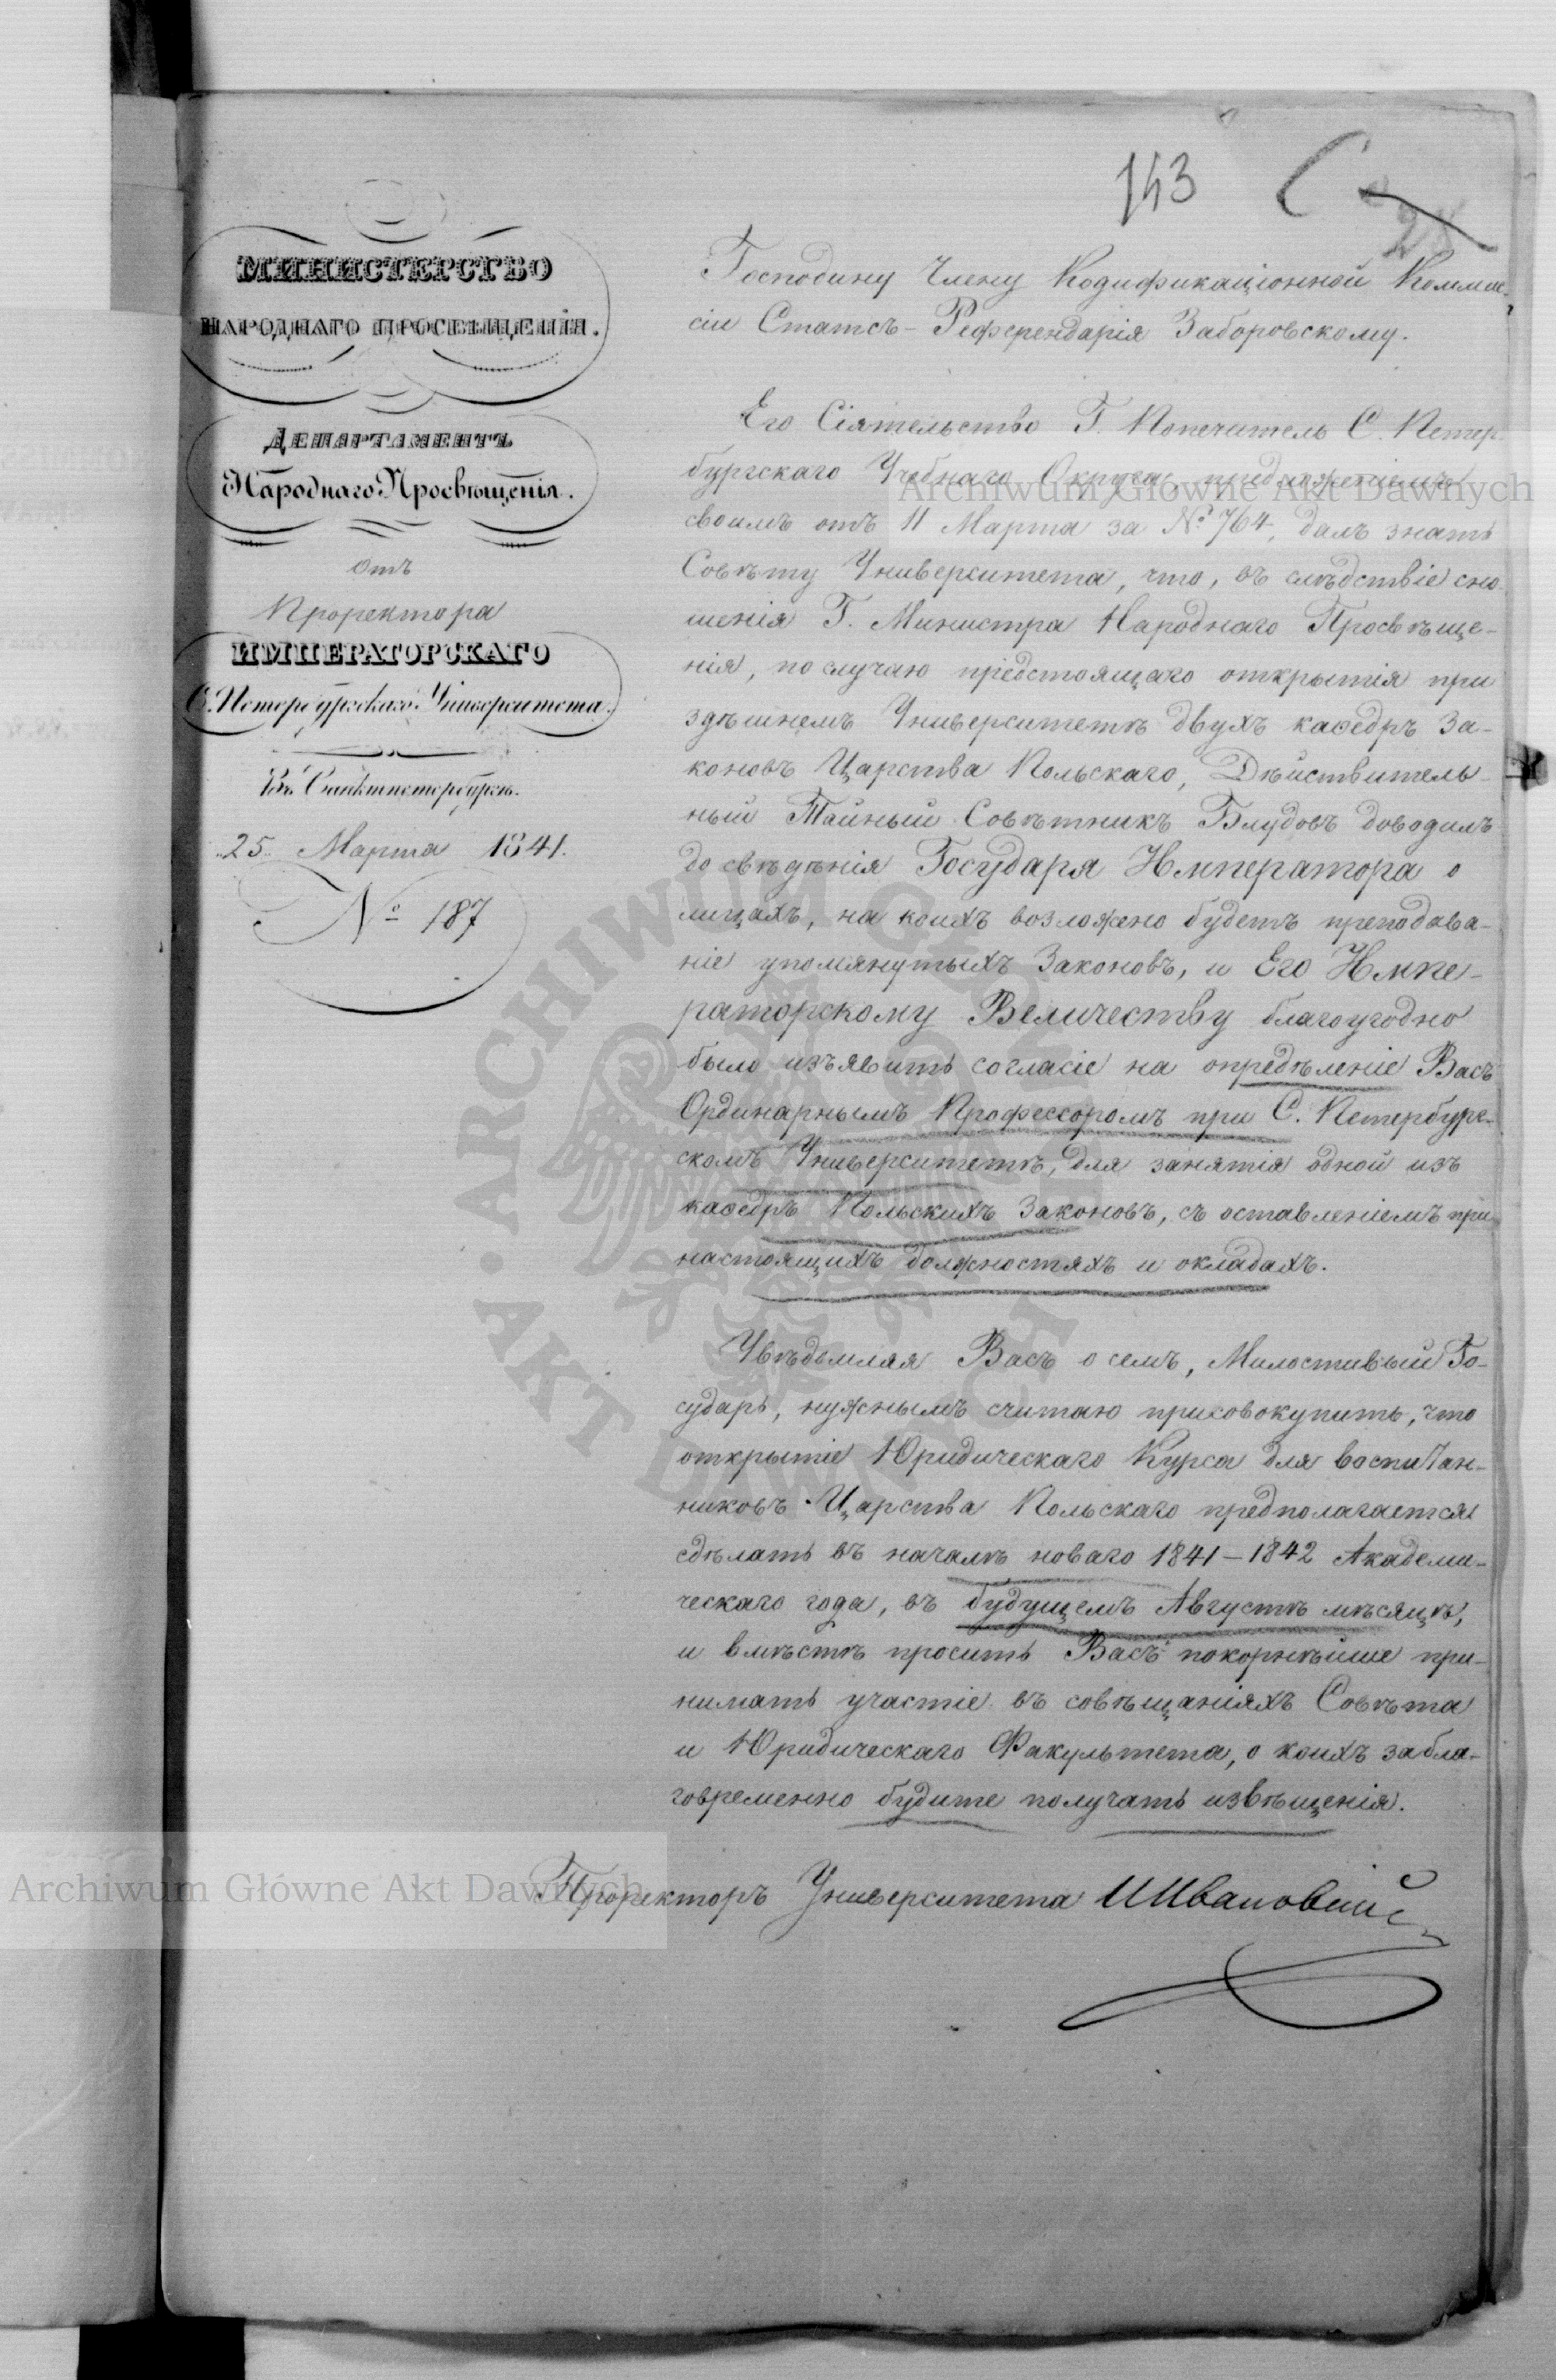 143
МИНИСТЕРСТВО
НАРОДНАГО ПРОСВѢЩЕНІЯ.
ДЕПАРТАМЕНТЪ
Народнаго Просвѣщенія.
Отъ
Проректора
ИМПЕРАТОРСКАГО
С. Петербургскаго Университета.
Въ Санктпетербургѣ.
"25" Марта 1841.
№ 187
Господину Члену Кодификаціонной Коммис-
сіи Статсъ-Референдарія Заборовскому.
Его Сіятельство Г. Попечитель С. Петер-
бургскаго Учебнаго Округа, предложеніемъ
своимъ отъ 11 Марта за № 764, далъ знать
Совѣту Университета, что, въ слѣдствіе сно-
шенія Г. Министра Народнаго Просвѣще-
нія, по случаю предстоящаго открытія при
здѣшнемъ Университетѣ двухъ каѳедръ За-
коновъ Царства Польскаго, Дѣйствитель-
ный Тайный Совѣтникъ Блудовъ доводилъ
до свѣдѣнія Государя Императора о
лицахъ, на коихъ возложено будетъ преподава-
ніе упомянутыхъ Законовъ, и Его Импе-
раторскому Величеству благоугодно
было изъявить согласіе на опредѣленіе Васъ
Ординарнымъ Профессоромъ при С. Петербург-
скомъ Университетѣ, для занятія одной изъ
каѳедръ Польскихъ Законовъ, съ оставленіемъ при
настоящихъ должностяхъ и окладахъ.
Увѣдомляя Васъ о семъ, Милостивый Го-
сударь, нужнымъ считаю присовокупить, что
открытіе Юридическаго Курса для воспитан-
никовъ Царства Польскаго предполагается
сдѣлать въ началѣ новаго 1841–1842 Академи-
ческаго года, въ будущемъ Августѣ мѣсяцѣ,
и вмѣстѣ просить Васъ покорнѣйше при-
нимать участіе въ совѣщаніяхъ Совѣта
и Юридическаго Факультета, о коихъ забла-
говременно будите получать извѣщенія.
Проректоръ Университета И Ивановскій
Archiwum Główne Akt Dawnych
ARCHIWUM GŁÓWNE AKT DAWNYCH
Archiwum Główne Akt Dawnych